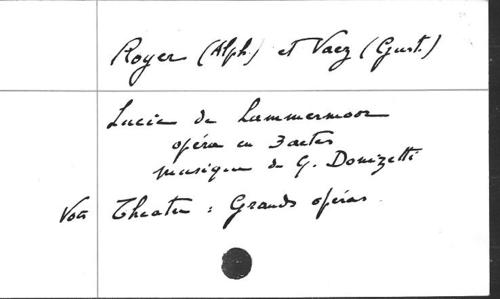 Royer (Alph.) et Vaez (Gust.)
Lucie de Lammermoor
opéra en 3 actes
musique de G. Donizetti
Voir Theatre : Grands opéras.